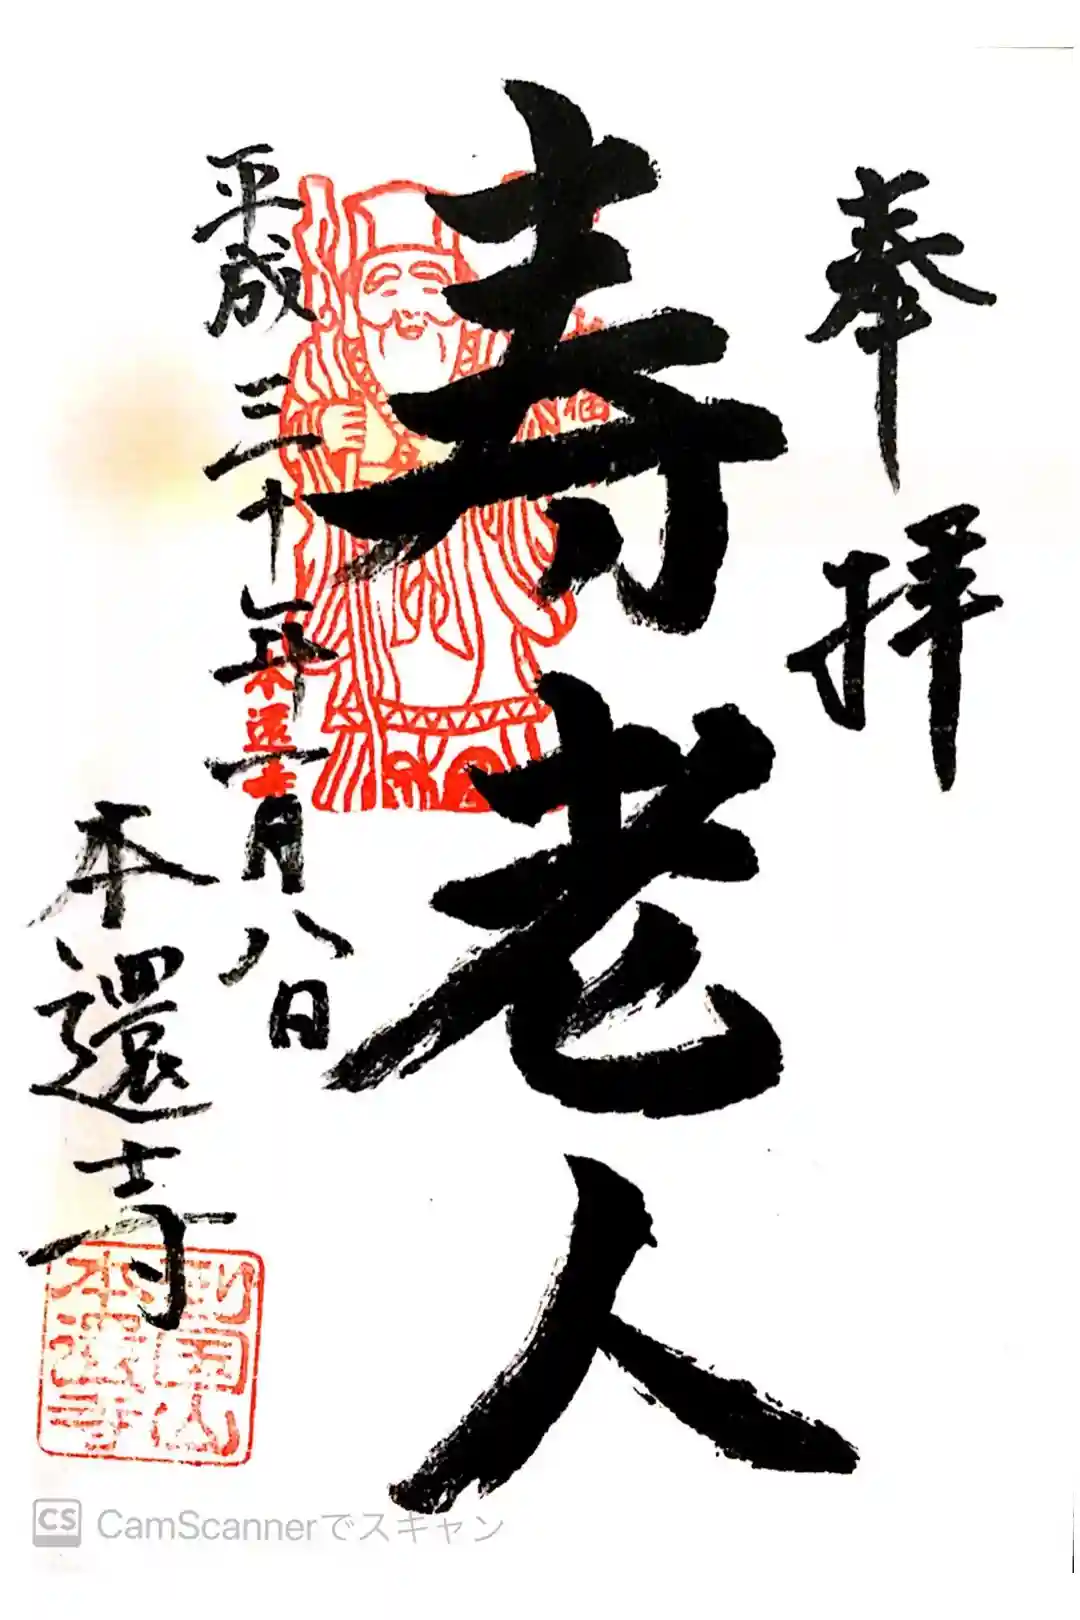 奉拝
寿老人
平成三十年一月八日
本還寺
本還寺
CS CamScannerでスキャン